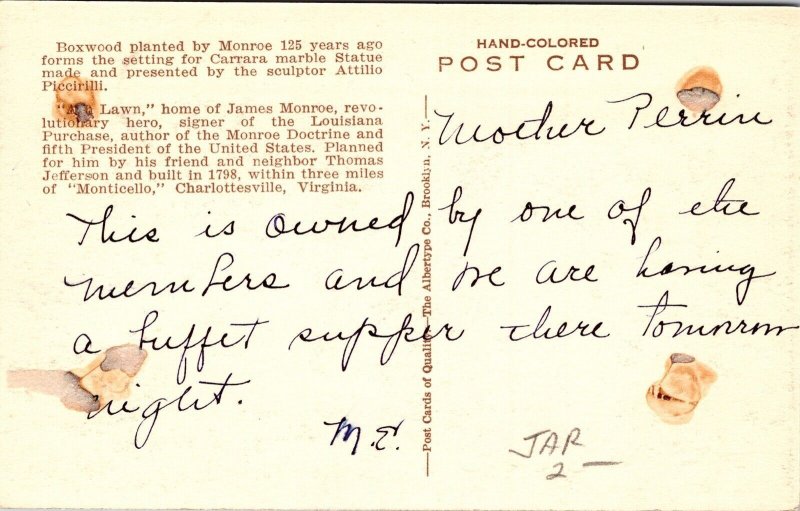 Boxwood planted by Monroe 125 years ago
forms the setting for Carrara marble Statue
made and presented by the sculptor Attilio
Piccirilli.
"Ash Lawn," home of James Monroe, revo-
lutionary hero, signer of the Louisiana
Purchase, author of the Monroe Doctrine and
fifth President of the United States. Planned
for him by his friend and neighbor Thomas
Jefferson and built in 1798, within three miles
of "Monticello," Charlottesville, Virginia.
HAND-COLORED
POST CARD
Post Cards of Quality.—The Albertype Co., Brooklyn, N. Y.
Mother Perrin
This is owned by one of the
members and we are having
a buffet supper there tomorrow
night.
M.E.
JAR
2 —